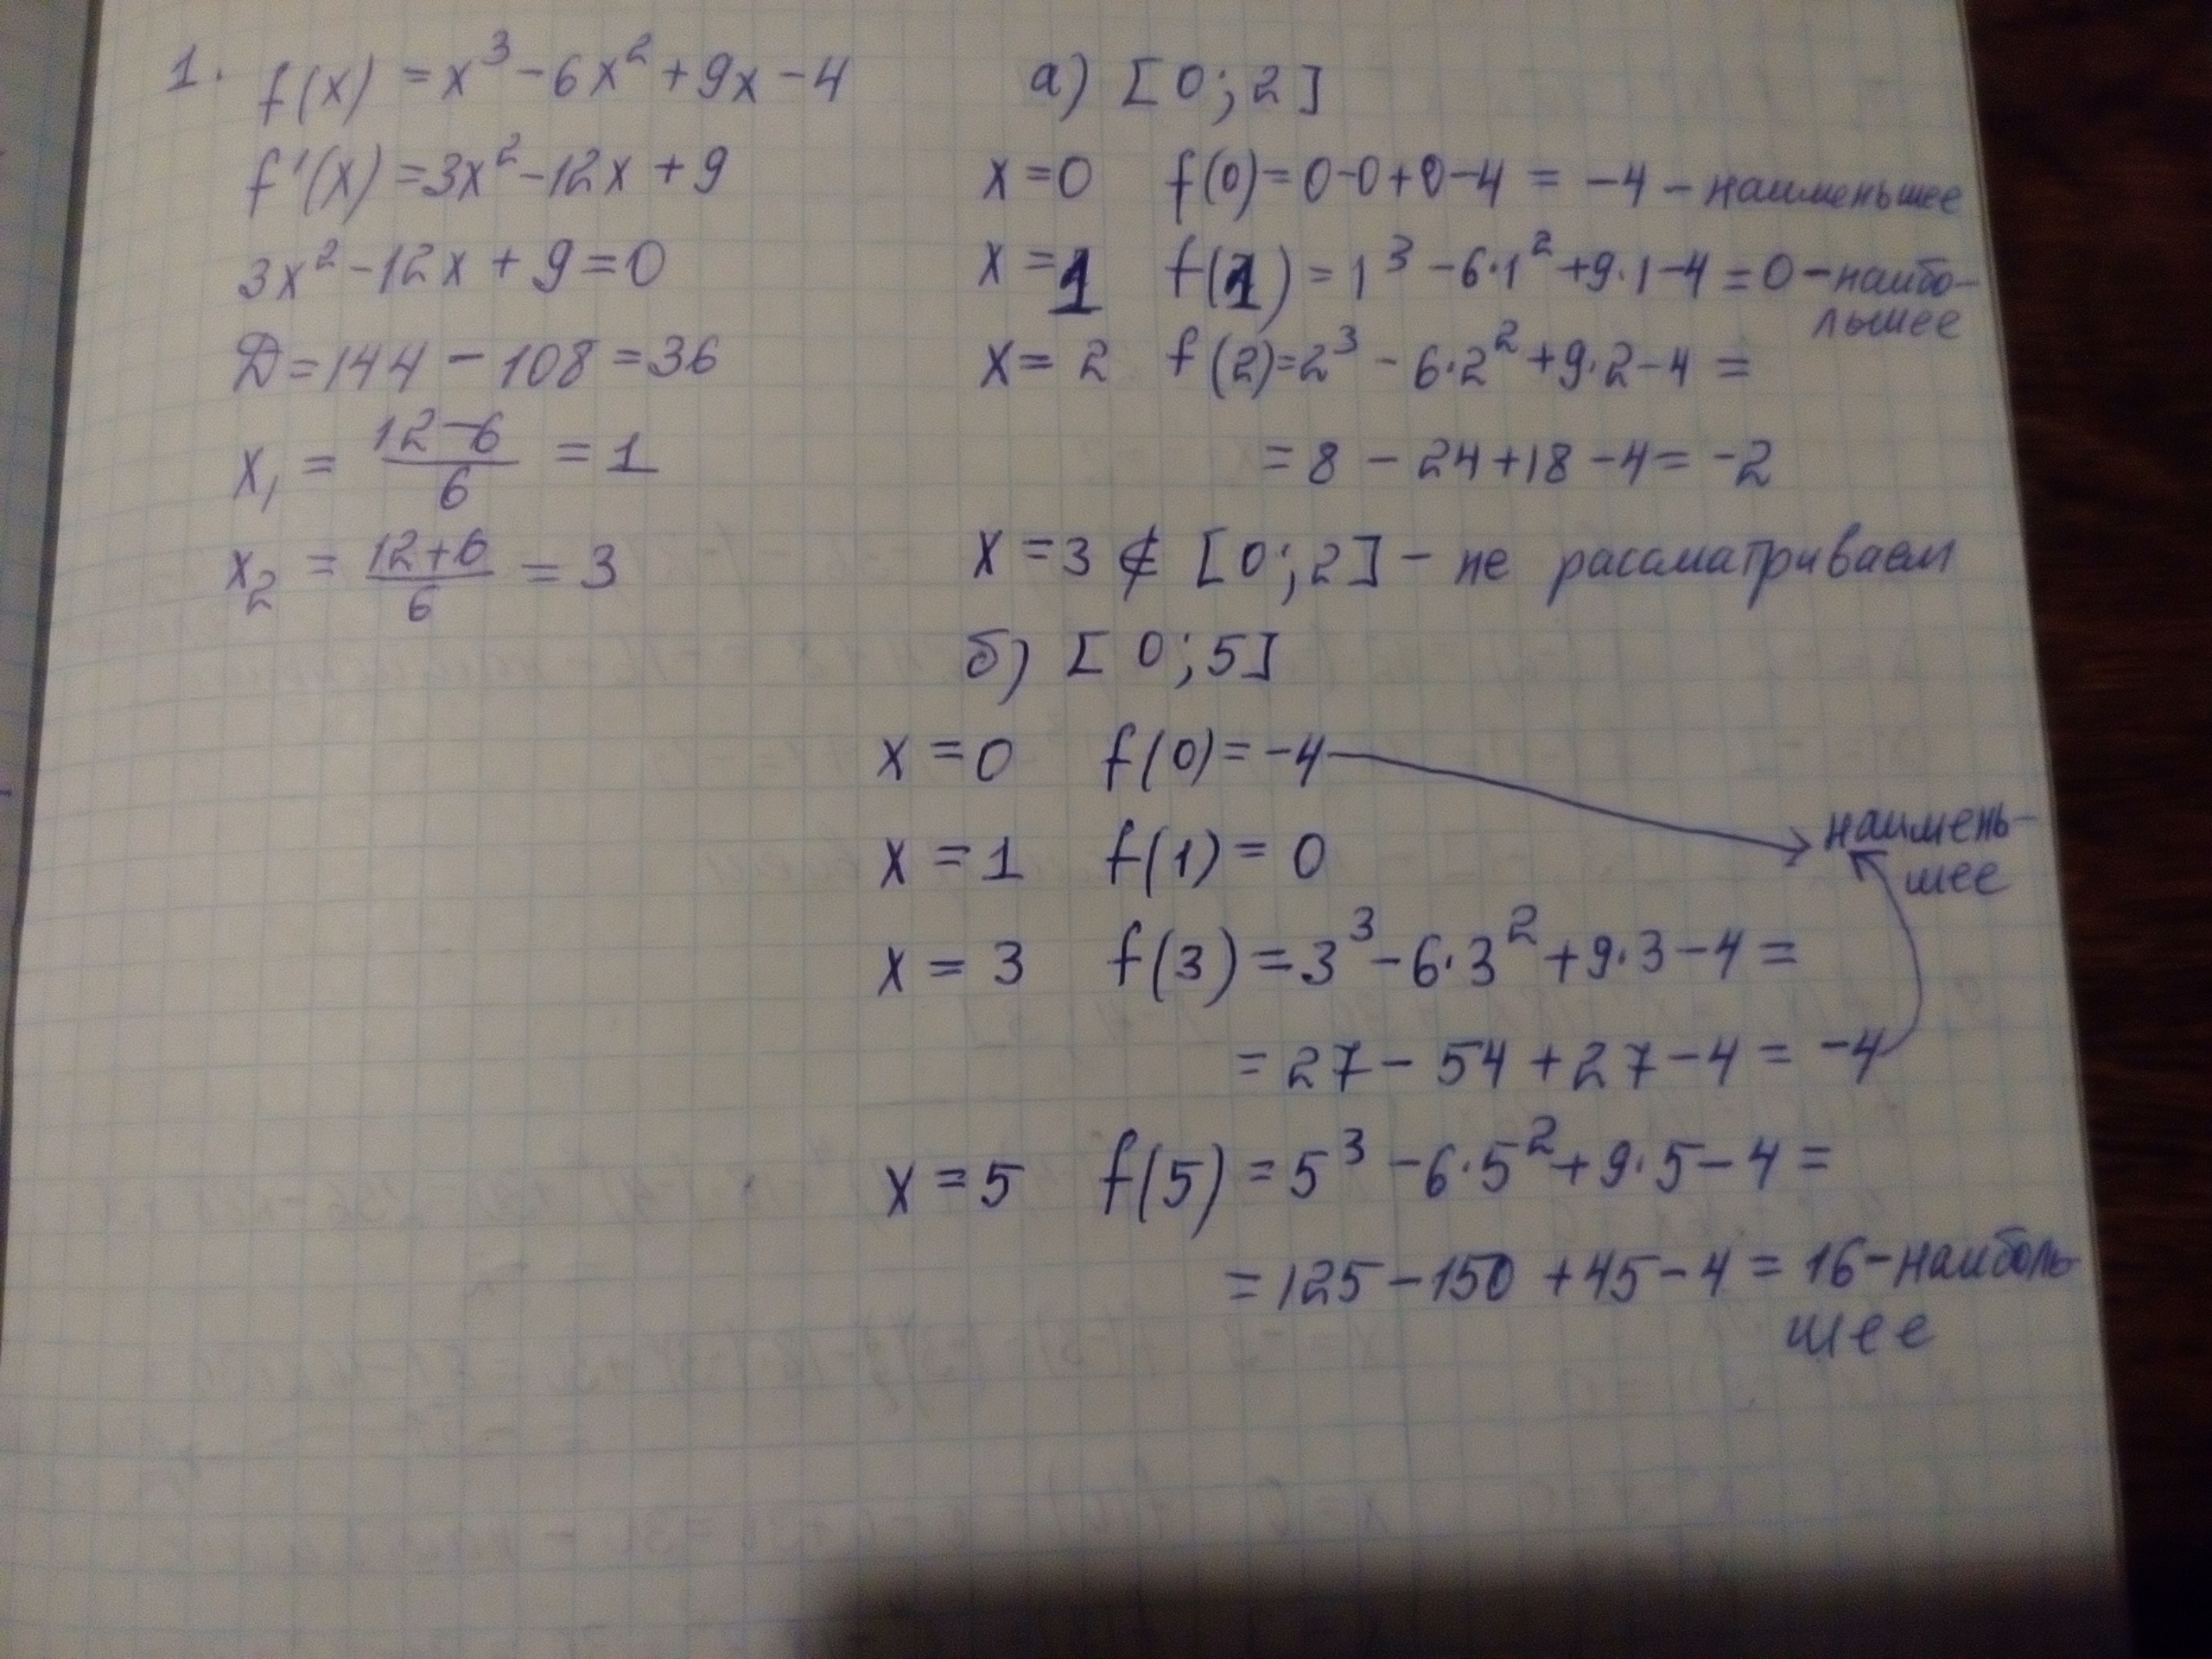 1. f(x) = x³ - 6x² + 9x - 4
f'(x) = 3x² - 12x + 9
3x² - 12x + 9 = 0
D = 144 - 108 = 36
x₁ = (12-6)/6 = 1
x₂ = (12+6)/6 = 3
а) [0; 2]
x = 0 f(0) = 0-0+0-4 = -4 - наименьшее
x = 1 f(1) = 1³ - 6·1² + 9·1 - 4 = 0 - наибо-
льшее
x = 2 f(2) = 2³ - 6·2² + 9·2 - 4 =
= 8 - 24 + 18 - 4 = -2
x = 3 ∉ [0; 2] - не рассматриваем
б) [0; 5]
x = 0 f(0) = -4
наимень-
шее
x = 1 f(1) = 0
x = 3 f(3) = 3³ - 6·3² + 9·3 - 4 =
= 27 - 54 + 27 - 4 = -4
x = 5 f(5) = 5³ - 6·5² + 9·5 - 4 =
= 125 - 150 + 45 - 4 = 16 - наиболь-
шее